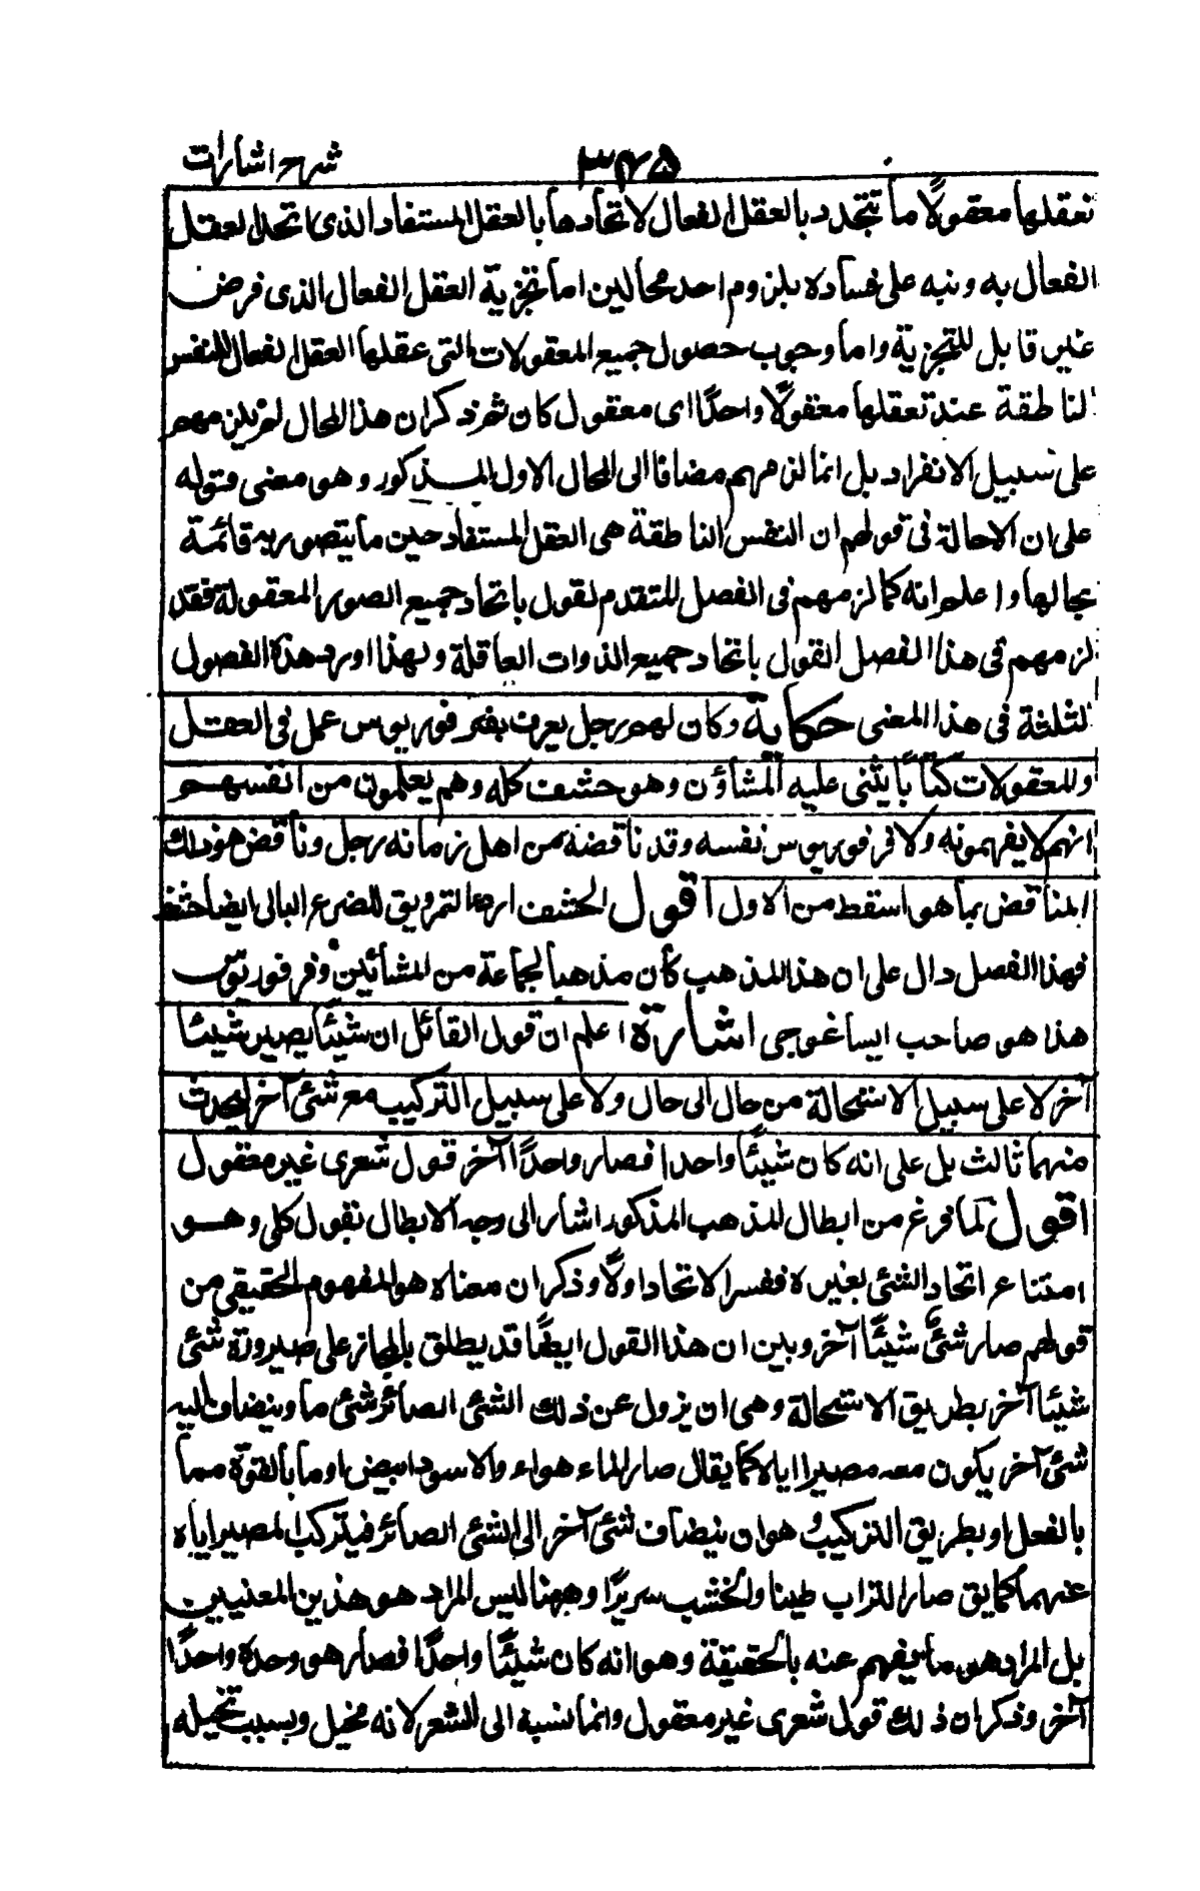 شرح اشارات
۳۴۵
تعقلها معقولًا ما تتجدد بالعقل الفعال لاتحادها بالعقل المستفاد الذى اتحد العقل
الفعال به ونبه على فساده بلزوم احد محالين اما تجزية العقل الفعال الذى فرض
غير قابل للتجزية واما وجوب حصول جميع المعقولات التى عقلها العقل الفعال للنفس
الناطقة عند تعقلها معقولًا واحدًا اى معقول كان ثم ذكر ان هذا المحال لم يلزمهم
على سبيل الانفراد بل انما لزمهم مضافا الى المحال الاول المذكور وهو معنى قوله
على ان الاحالة فى قولهم ان النفس الناطقة هى العقل المستفاد حين ما يتصور به قائمة
بحالها واعلم انه كما لزمهم فى الفصل المتقدم القول باتحاد جميع الصور المعقولة فقد
لزمهم فى هذا الفصل القول باتحاد جميع الذوات العاقلة ولهذا اورد هذه الفصول
الثلثة فى هذا المعنى حكاية وكان لهم رجل يعرف بفرفوريوس عمل فى العقل
والمعقولات كتابًا يثنى عليه المشاؤن وهو حشف كله وهم يعلمون من انفسهم
انهم لا يفهمونه ولا فرفوريوس نفسه وقد ناقضه من اهل زمانه رجل وناقض هو ذلك
المناقض بما هو اسقط من الاول اقول الحشف اردء التمر ويق للضرع البالى ايضا حشف
فهذا الفصل دال على ان هذا المذهب كان مذهبا لجماعة من المشائين وفرفوريوس
هذا هو صاحب ايساغوجى اشارة اعلم ان قول القائل ان شيئًا يصير شيئا
آخر لا على سبيل الاستحالة من حال الى حال ولا على سبيل التركيب مع شئ آخر ليحدث
منهما ثالث بل على انه كان شيئًا واحدا فصار واحدًا آخر قول شعرى غير معقول
اقول لما فرغ من ابطال المذهب المذكور اشار الى وجه الابطال بقول كلى وهو
امتناع اتحاد الشئ بغيره ففسر الاتحاد اولًا وذكر ان معناه هو المفهوم الحقيقى من
قولهم صار شئٌ شيئًا آخر وبين ان هذا القول ايضًا قد يطلق بالمجاز على صيرورة شئ
شيئا آخر بطريق الاستحالة وهى ان يزول عن ذلك الشئ الصائر شئ ما وينضاف اليه
شئ آخر يكون معه مصيرا اياه كما يقال صار الماء هواء والاسود ابيض او ما بالقوة مما
بالفعل او بطريق التركيب وهو ان ينضاف شئ آخر الى الشئ الصائر فيتركب المصير اياه
عنهما كما يق صار التراب طينا والخشب سريرًا وههنا ليس المراد هو هذين المعنيين
بل المراد هو ما يفهم عنه بالحقيقة وهو انه كان شيئًا واحدًا فصار هو وحده واحدًا
آخر وذكر ان ذلك قول شعرى غير معقول وانما نسبه الى الشعر لانه مخيل وبسبب تخيله